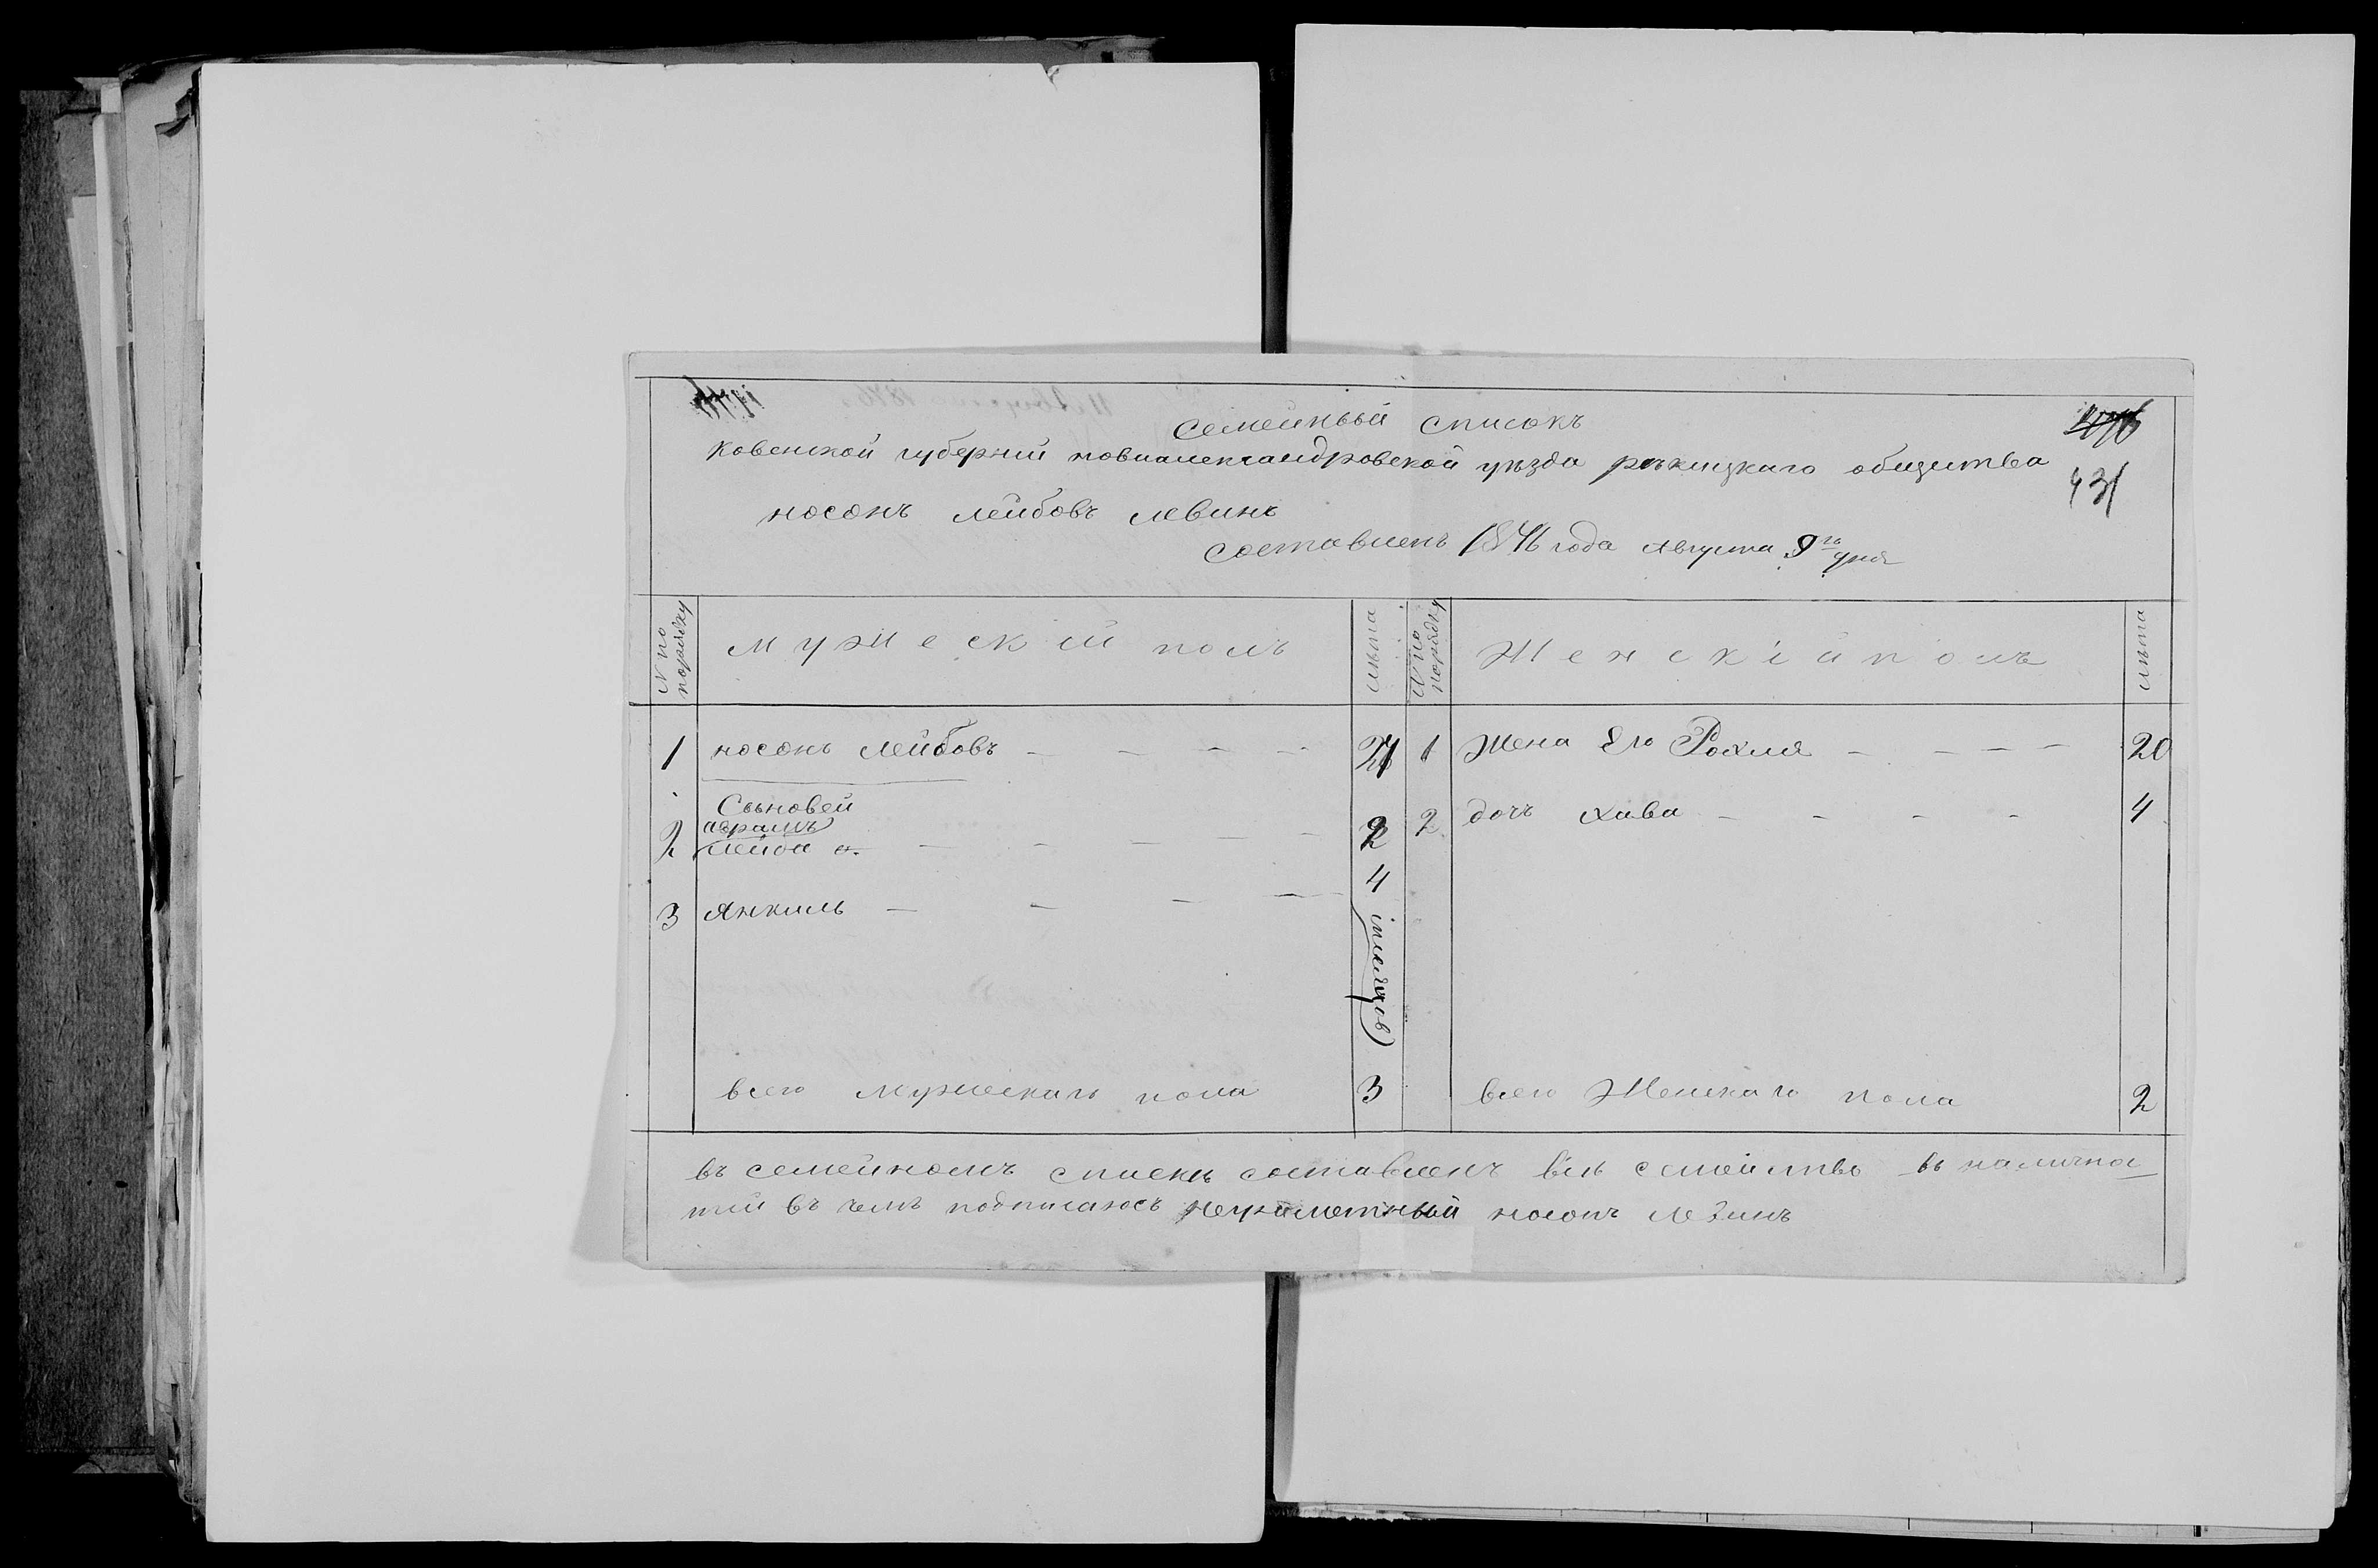 семейный списокъ
Ковенской губерніи новоалександровской уѣзда
общества
431
носонъ лейбовъ левинъ
составленъ года Августа 9го дня
№ по порядку
мужескій полъ
лѣта
№ по порядку
Женскій полъ
лѣта
1 носонъ лейбовъ 1 Жена Его Рохля 20
Сыновей
2 абрамъ 2 2 дочь хава 4
лейба
3 Янкиль 4 (месяцов)
всего мужескаго пола 3 всего Женскаго пола 2
въ семейномъ списки составленъ все семейство въ налично
сти въ чемъ подписаюсъ неграмотный носонъ левинъ